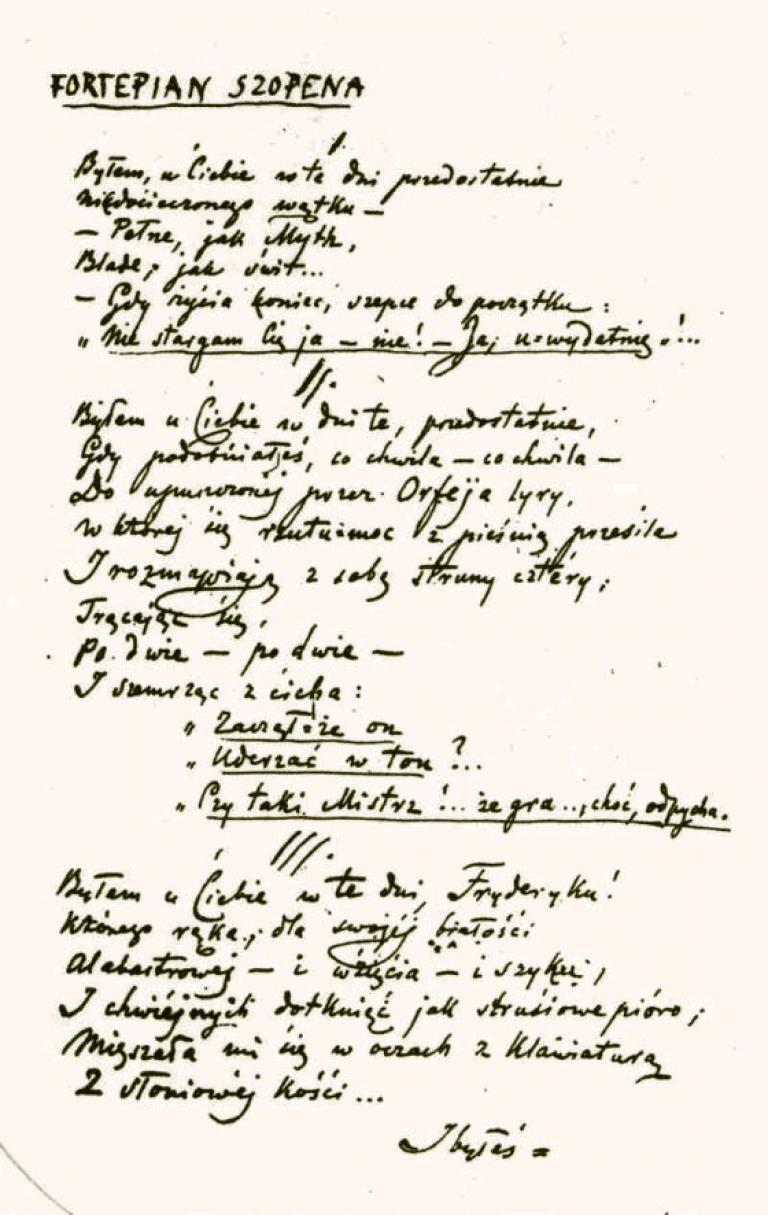 FORTEPIAN SZOPENA
I.
Byłem, u Ciebie w te dni przedostatnie
Niedocieczonego wątku —
— Pełne, jak Myth,
Blade, jak świt...
— Gdy życia koniec, szepce do początku:
„Nie stargam Cię ja — nie! — Ja, u=wydatnię!...
II.
Byłem u Ciebie w dni te, przedostatnie,
Gdy podobniałeś, co chwila — co chwila —
Do upuszczonej przez Orfeja lyry,
W której się rzutu=moc z pieśnią przesila
I rozmawiają z sobą struny cztéry,
Trącając się,
Po dwie — po dwie —
I szemrząc z cicha:
„Zacząłże on
„Uderzać w ton?...
„Czy taki Mistrz!... że gra.., choć, odpycha.
III.
Byłem u Ciebie w te dni, Fryderyku!
Którego ręka, dla swojéj białości
Alabastrowej — i wzięcia — i szyku,
I chwiéjnych dotknięć jak strusiowe pióro,
Mięszała mi się w oczach z klawiaturą
Z słoniowéj kości...
I byłeś =